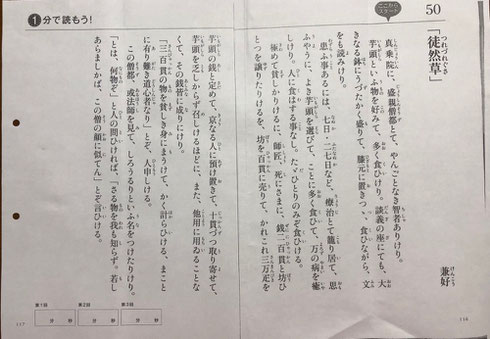 50
ここから
スタート
つれづれぐさ
「徒然草」
けんこう
兼好
真乗院に、盛親僧都とて、やんごとなき智者ありけり。
芋頭といふ物を好みて、多く食ひけり。談義の座にても、大
きなる鉢にうづたかく盛りて、膝元に置きつつ、食ひながら、文
をも読みけり。
患ふ事あるには、七日・二七日など、療治とて籠り居て、思
ふやうに、よき芋頭を選びて、ことに多く食ひて、万の病を癒
しけり。人に食はする事なし。たゞひとりのみぞ食ひける。
極めて貧しかりけるに、師匠、死にさまに、銭二百貫と坊ひ
とつを譲りたりけるを、坊を百貫に売りて、かれこれ三万疋を
116
1分で読もう!
芋頭の銭と定めて、京なる人に預け置きて、十貫づつ取り寄せて、
芋頭を乏しからず召しけるほどに、また、他用に用ゐることな
くて、その銭皆に成りにけり。
「三百貫の物を貧しき身にまうけて、かく計らひける、まこと
に有り難き道心者なり」とぞ、人申しける。
この僧都、或法師を見て、しろうるりといふ名をつけたりけり。
「とは、何物ぞ」と人の問ひければ、「さる物を我も知らず。若し
あらましかば、この僧の顔に似てん」とぞ言ひける。
第1回
分 秒
第2回
分 秒
第3回
分 秒
117